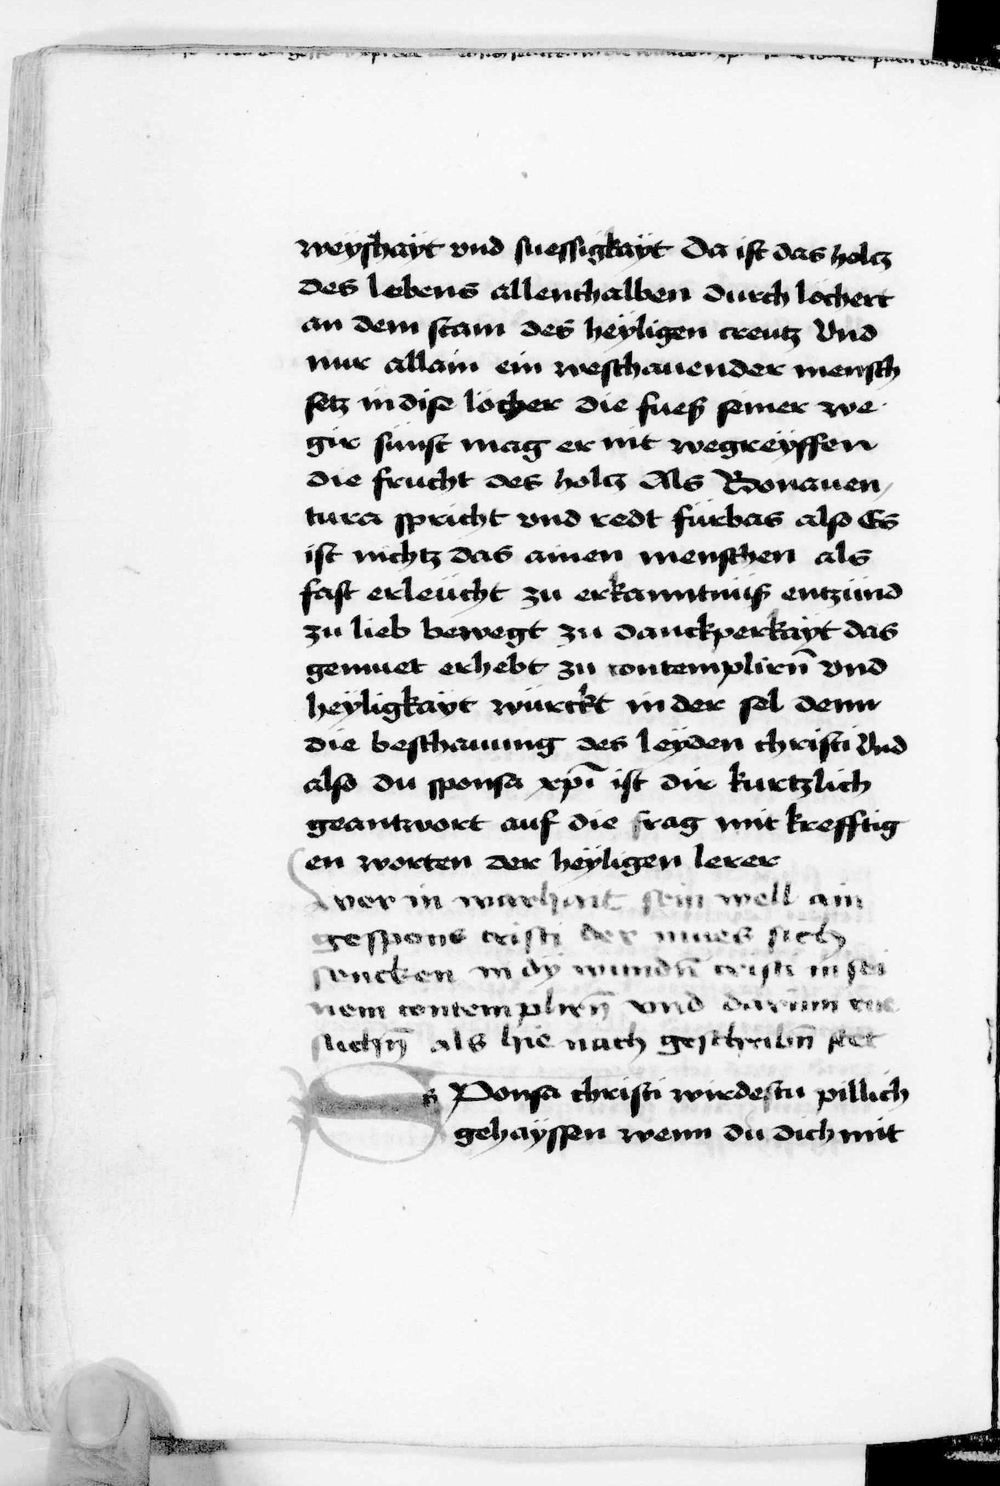 weyshayt vnd suessigkayt Da ist das holcz
des lebens allenthalben durch lochert
an dem stam des heyligen creutz Vnd
nur allain ein weschauender mensch
setz in dise löcher die fueß seiner we
gir sünst mag er nit wegreyffen
die frucht des holcz Als Bonauen
tura spricht vnd redt fürbas also Es
ist nichtz das ainen menschen als
fast erleücht zu erkanntnüß entzünd
zu lieb bewegt zu danckperkayt das
gemuet erhebt zu contemplirn̄ vnd
heyligkayt würckt in der sel denn
die beschauung des leyden christi Vnd
also du sponsa xpī ist dir kurtzlich
geantwort auf die frag mit krefftig
en worten der heyligen lerer
wer in warhait sein well ain
gespons cristi der mues sich
sencken in dy wundn̄ cristi in sei
nem contemplirn̄ vnd darinn rue
suchn̄ als hie nach geschribn̄ stet
S Ponsa christi wirdestu pillich
gehayssen wenn du dich mit